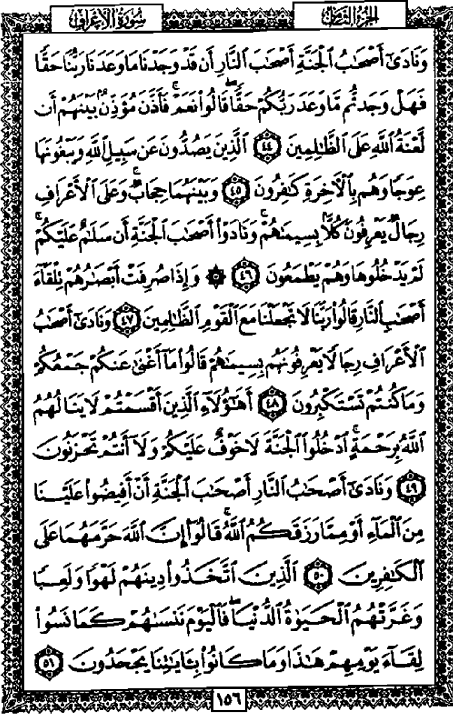 سُورَةُ الْأَعْرَافِ الجزء الثامن
وَنَادَىٰٓ أَصْحَٰبُ ٱلْجَنَّةِ أَصْحَٰبَ ٱلنَّارِ أَن قَدْ وَجَدْنَا مَا وَعَدَنَا رَبُّنَا حَقًّا
فَهَلْ وَجَدتُّم مَّا وَعَدَ رَبُّكُمْ حَقًّا ۖ قَالُوا۟ نَعَمْ ۚ فَأَذَّنَ مُؤَذِّنٌۢ بَيْنَهُمْ أَن
لَّعْنَةُ ٱللَّهِ عَلَى ٱلظَّٰلِمِينَ ٤٤ ٱلَّذِينَ يَصُدُّونَ عَن سَبِيلِ ٱللَّهِ وَيَبْغُونَهَا
عِوَجًا وَهُم بِٱلْءَاخِرَةِ كَٰفِرُونَ ٤٥ وَبَيْنَهُمَا حِجَابٌ ۚ وَعَلَى ٱلْأَعْرَافِ
رِجَالٌ يَعْرِفُونَ كُلًّۢا بِسِيمَىٰهُمْ ۚ وَنَادَوْا۟ أَصْحَٰبَ ٱلْجَنَّةِ أَن سَلَٰمٌ عَلَيْكُمْ ۚ
لَمْ يَدْخُلُوهَا وَهُمْ يَطْمَعُونَ ٤٦ ۞ وَإِذَا صُرِفَتْ أَبْصَٰرُهُمْ تِلْقَآءَ
أَصْحَٰبِ ٱلنَّارِ قَالُوا۟ رَبَّنَا لَا تَجْعَلْنَا مَعَ ٱلْقَوْمِ ٱلظَّٰلِمِينَ ٤٧ وَنَادَىٰٓ أَصْحَٰبُ
ٱلْأَعْرَافِ رِجَالًا يَعْرِفُونَهُم بِسِيمَىٰهُمْ قَالُوا۟ مَآ أَغْنَىٰ عَنكُمْ جَمْعُكُمْ
وَمَا كُنتُمْ تَسْتَكْبِرُونَ ٤٨ أَهَٰٓؤُلَآءِ ٱلَّذِينَ أَقْسَمْتُمْ لَا يَنَالُهُمُ
ٱللَّهُ بِرَحْمَةٍ ۚ ٱدْخُلُوا۟ ٱلْجَنَّةَ لَا خَوْفٌ عَلَيْكُمْ وَلَآ أَنتُمْ تَحْزَنُونَ
٤٩ وَنَادَىٰٓ أَصْحَٰبُ ٱلنَّارِ أَصْحَٰبَ ٱلْجَنَّةِ أَنْ أَفِيضُوا۟ عَلَيْنَا
مِنَ ٱلْمَآءِ أَوْ مِمَّا رَزَقَكُمُ ٱللَّهُ ۚ قَالُوٓا۟ إِنَّ ٱللَّهَ حَرَّمَهُمَا عَلَى
ٱلْكَٰفِرِينَ ٥٠ ٱلَّذِينَ ٱتَّخَذُوا۟ دِينَهُمْ لَهْوًا وَلَعِبًا
وَغَرَّتْهُمُ ٱلْحَيَوٰةُ ٱلدُّنْيَا ۚ فَٱلْيَوْمَ نَنسَىٰهُمْ كَمَا نَسُوا۟
لِقَآءَ يَوْمِهِمْ هَٰذَا وَمَا كَانُوا۟ بِـَٔايَٰتِنَا يَجْحَدُونَ ٥١
١٥٦